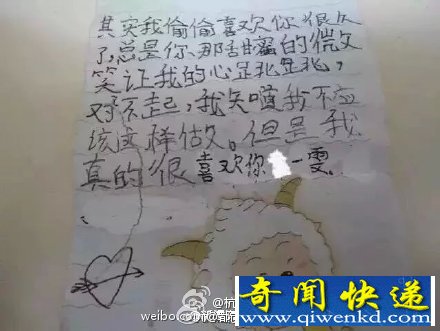 其实我偷偷喜欢你很久
了,总是你那甜蜜的微
笑让我的心
对不起,我知道我不应
该这样做。但是我
真的很喜欢你 一雯
weibo.com/
奇闻快递
www.qiwenkd.com